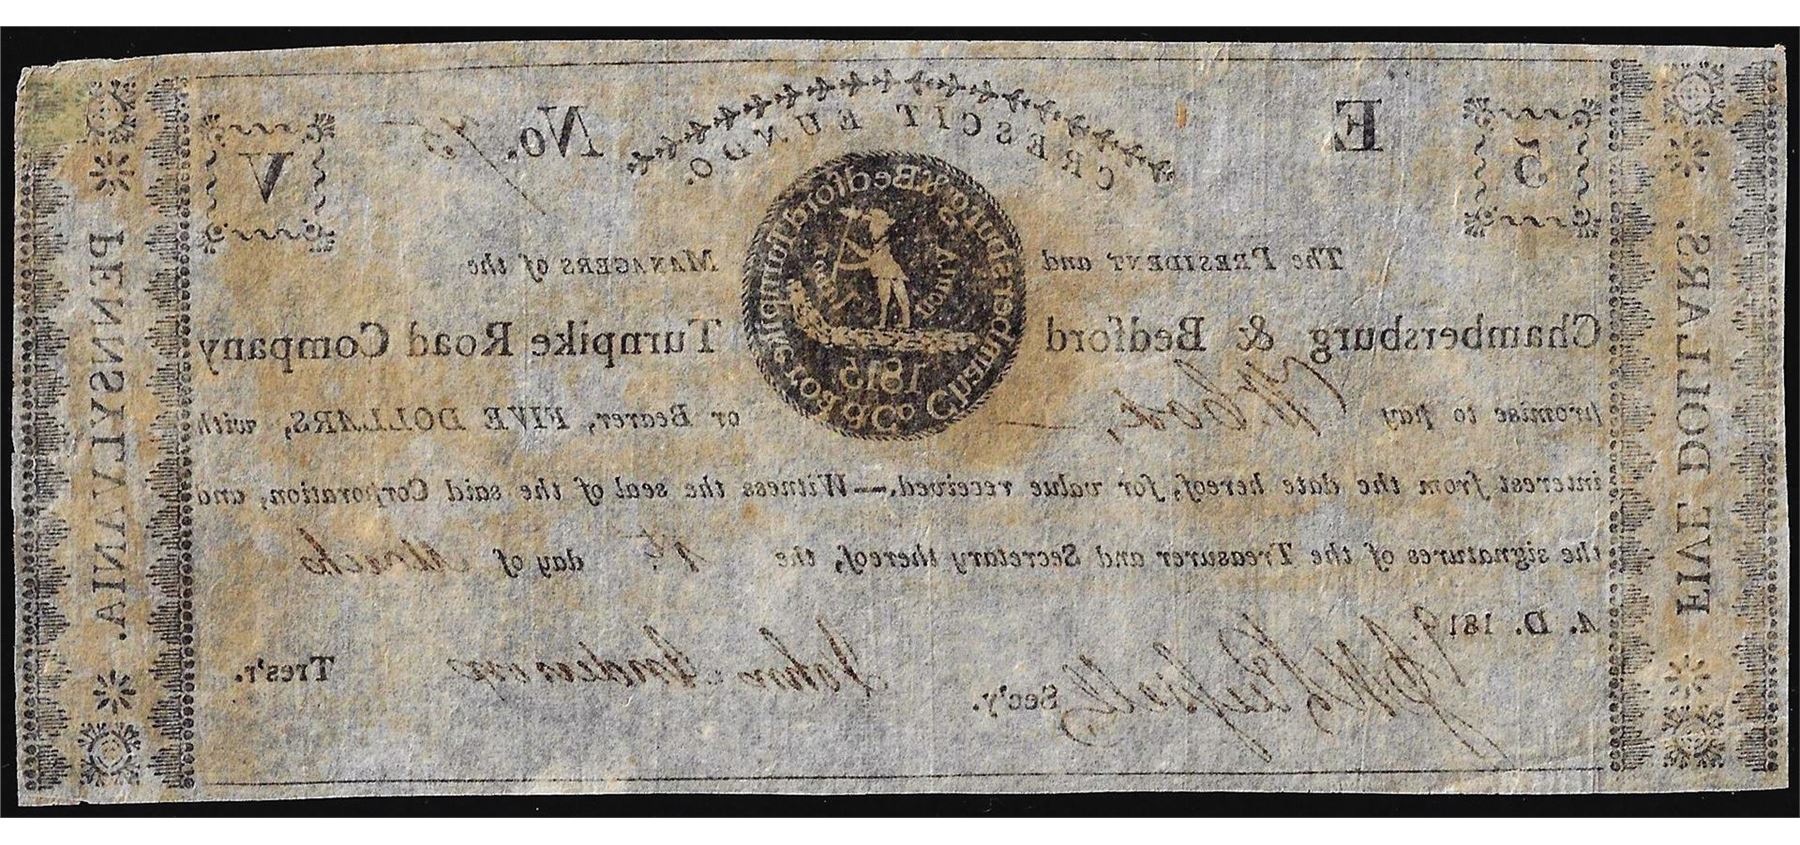 CRESCIT EUNDO.
5 E No. V
The PRESIDENT and MANAGERS of the
Chambersburg & Bedford Turnpike Road Company
promise to pay or Bearer, FIVE DOLLARS, with
interest from the date hereof, for value received.—Witness the seal of the said Corporation, and
the signatures of the Treasurer and Secretary thereof, the day of March
A. D. 1819
Sec'y. John Anderson Tres'r.
FIVE DOLLARS.
PENNSYLVANIA.
Chambersburg & Bedford Turnpike Road & Co
1815